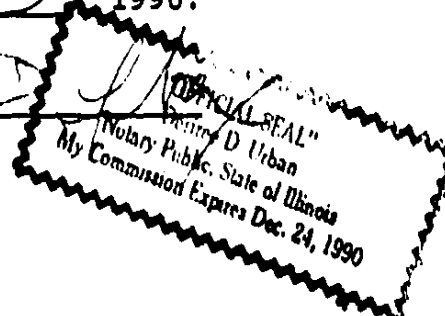 1990.
"OFFICIAL SEAL"
D. Urban
Notary Public, State of Illinois
My Commission Expires Dec. 24, 1990